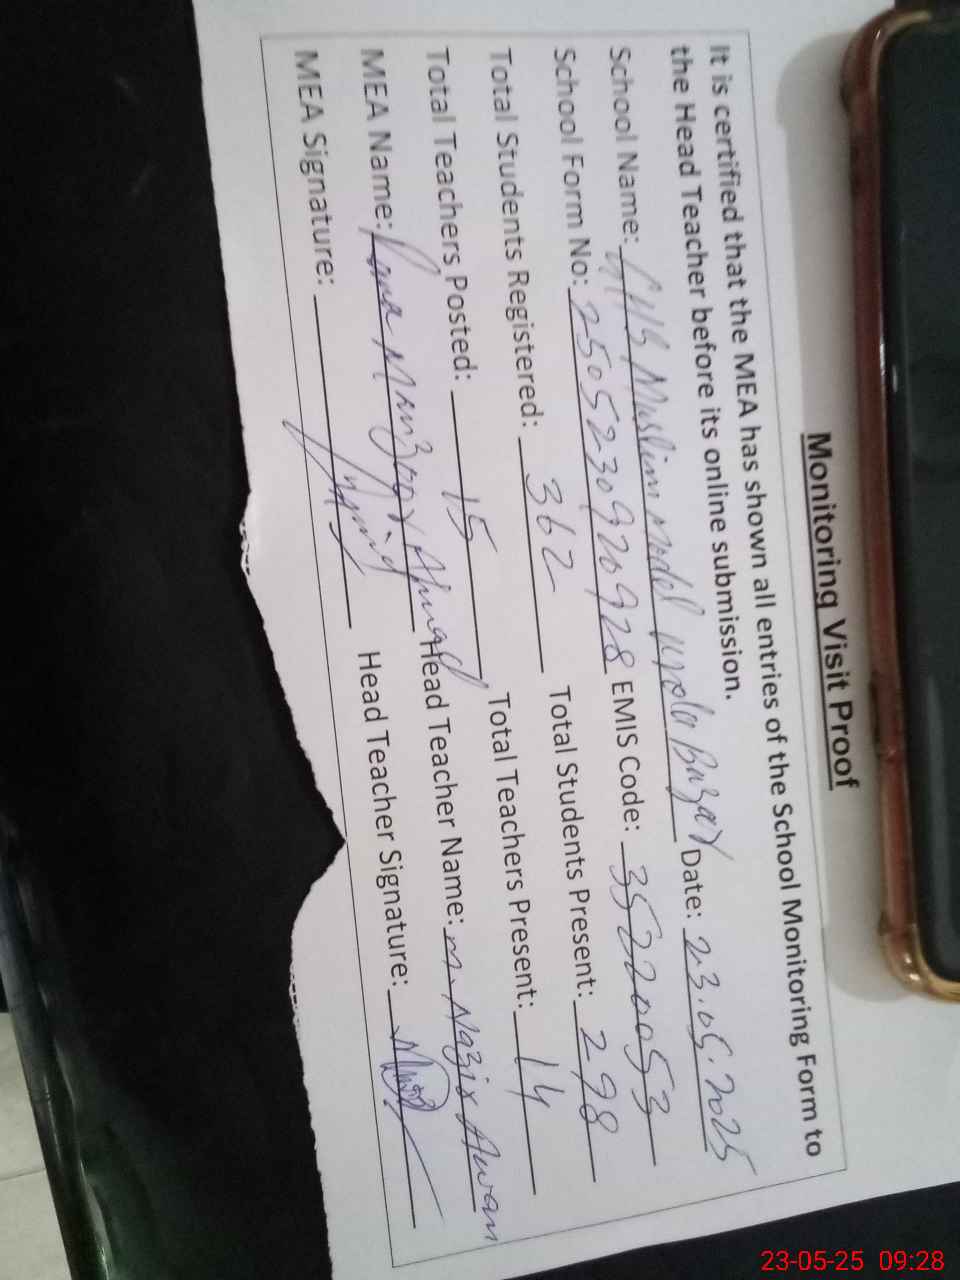 Monitoring Visit Proof
It is certified that the MEA has shown all entries of the School Monitoring Form to
the Head Teacher before its online submission.
School Name: GHS Muslim Model Bazar Date: 23.05.2025
School Form No: 2505230920928 EMIS Code: 35220053
Total Students Registered: 362 Total Students Present: 298
Total Teachers Posted: 15 Total Teachers Present: 14
MEA Name: Rana Manzoor Ahmad Head Teacher Name: M. Nazir Awan
MEA Signature: Head Teacher Signature:
23-05-25 09:28